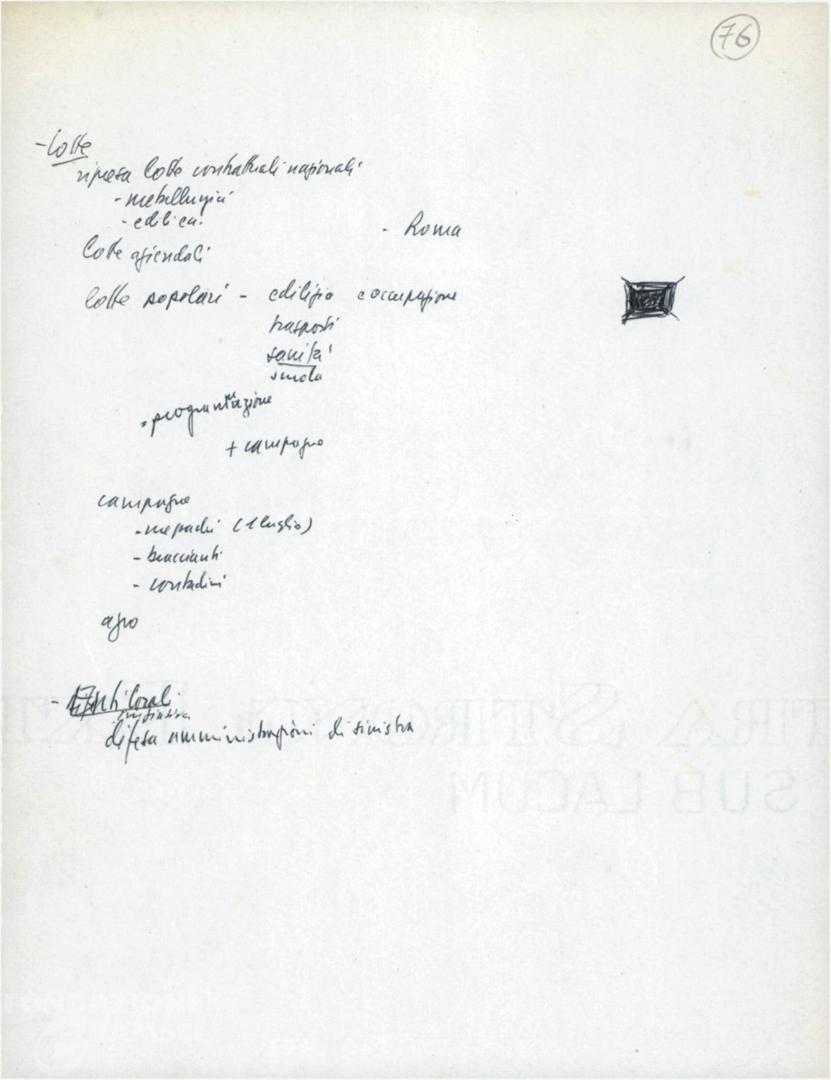 76
- Lotte
ripresa lotte contrattuali nazionali
- metallurgici
- edili ecc.
- Roma
lotte aziendali
lotte popolari - edilizia e occupazione
trasporti
sanità
scuola
programmazione
+ campagne
campagne
- mezzadri (1 luglio)
- braccianti
- contadini
agro
- Enti locali
iniziativa
difesa amministrazioni di sinistra
SUB LACUM
FONDAZIONE
GRAMSCI